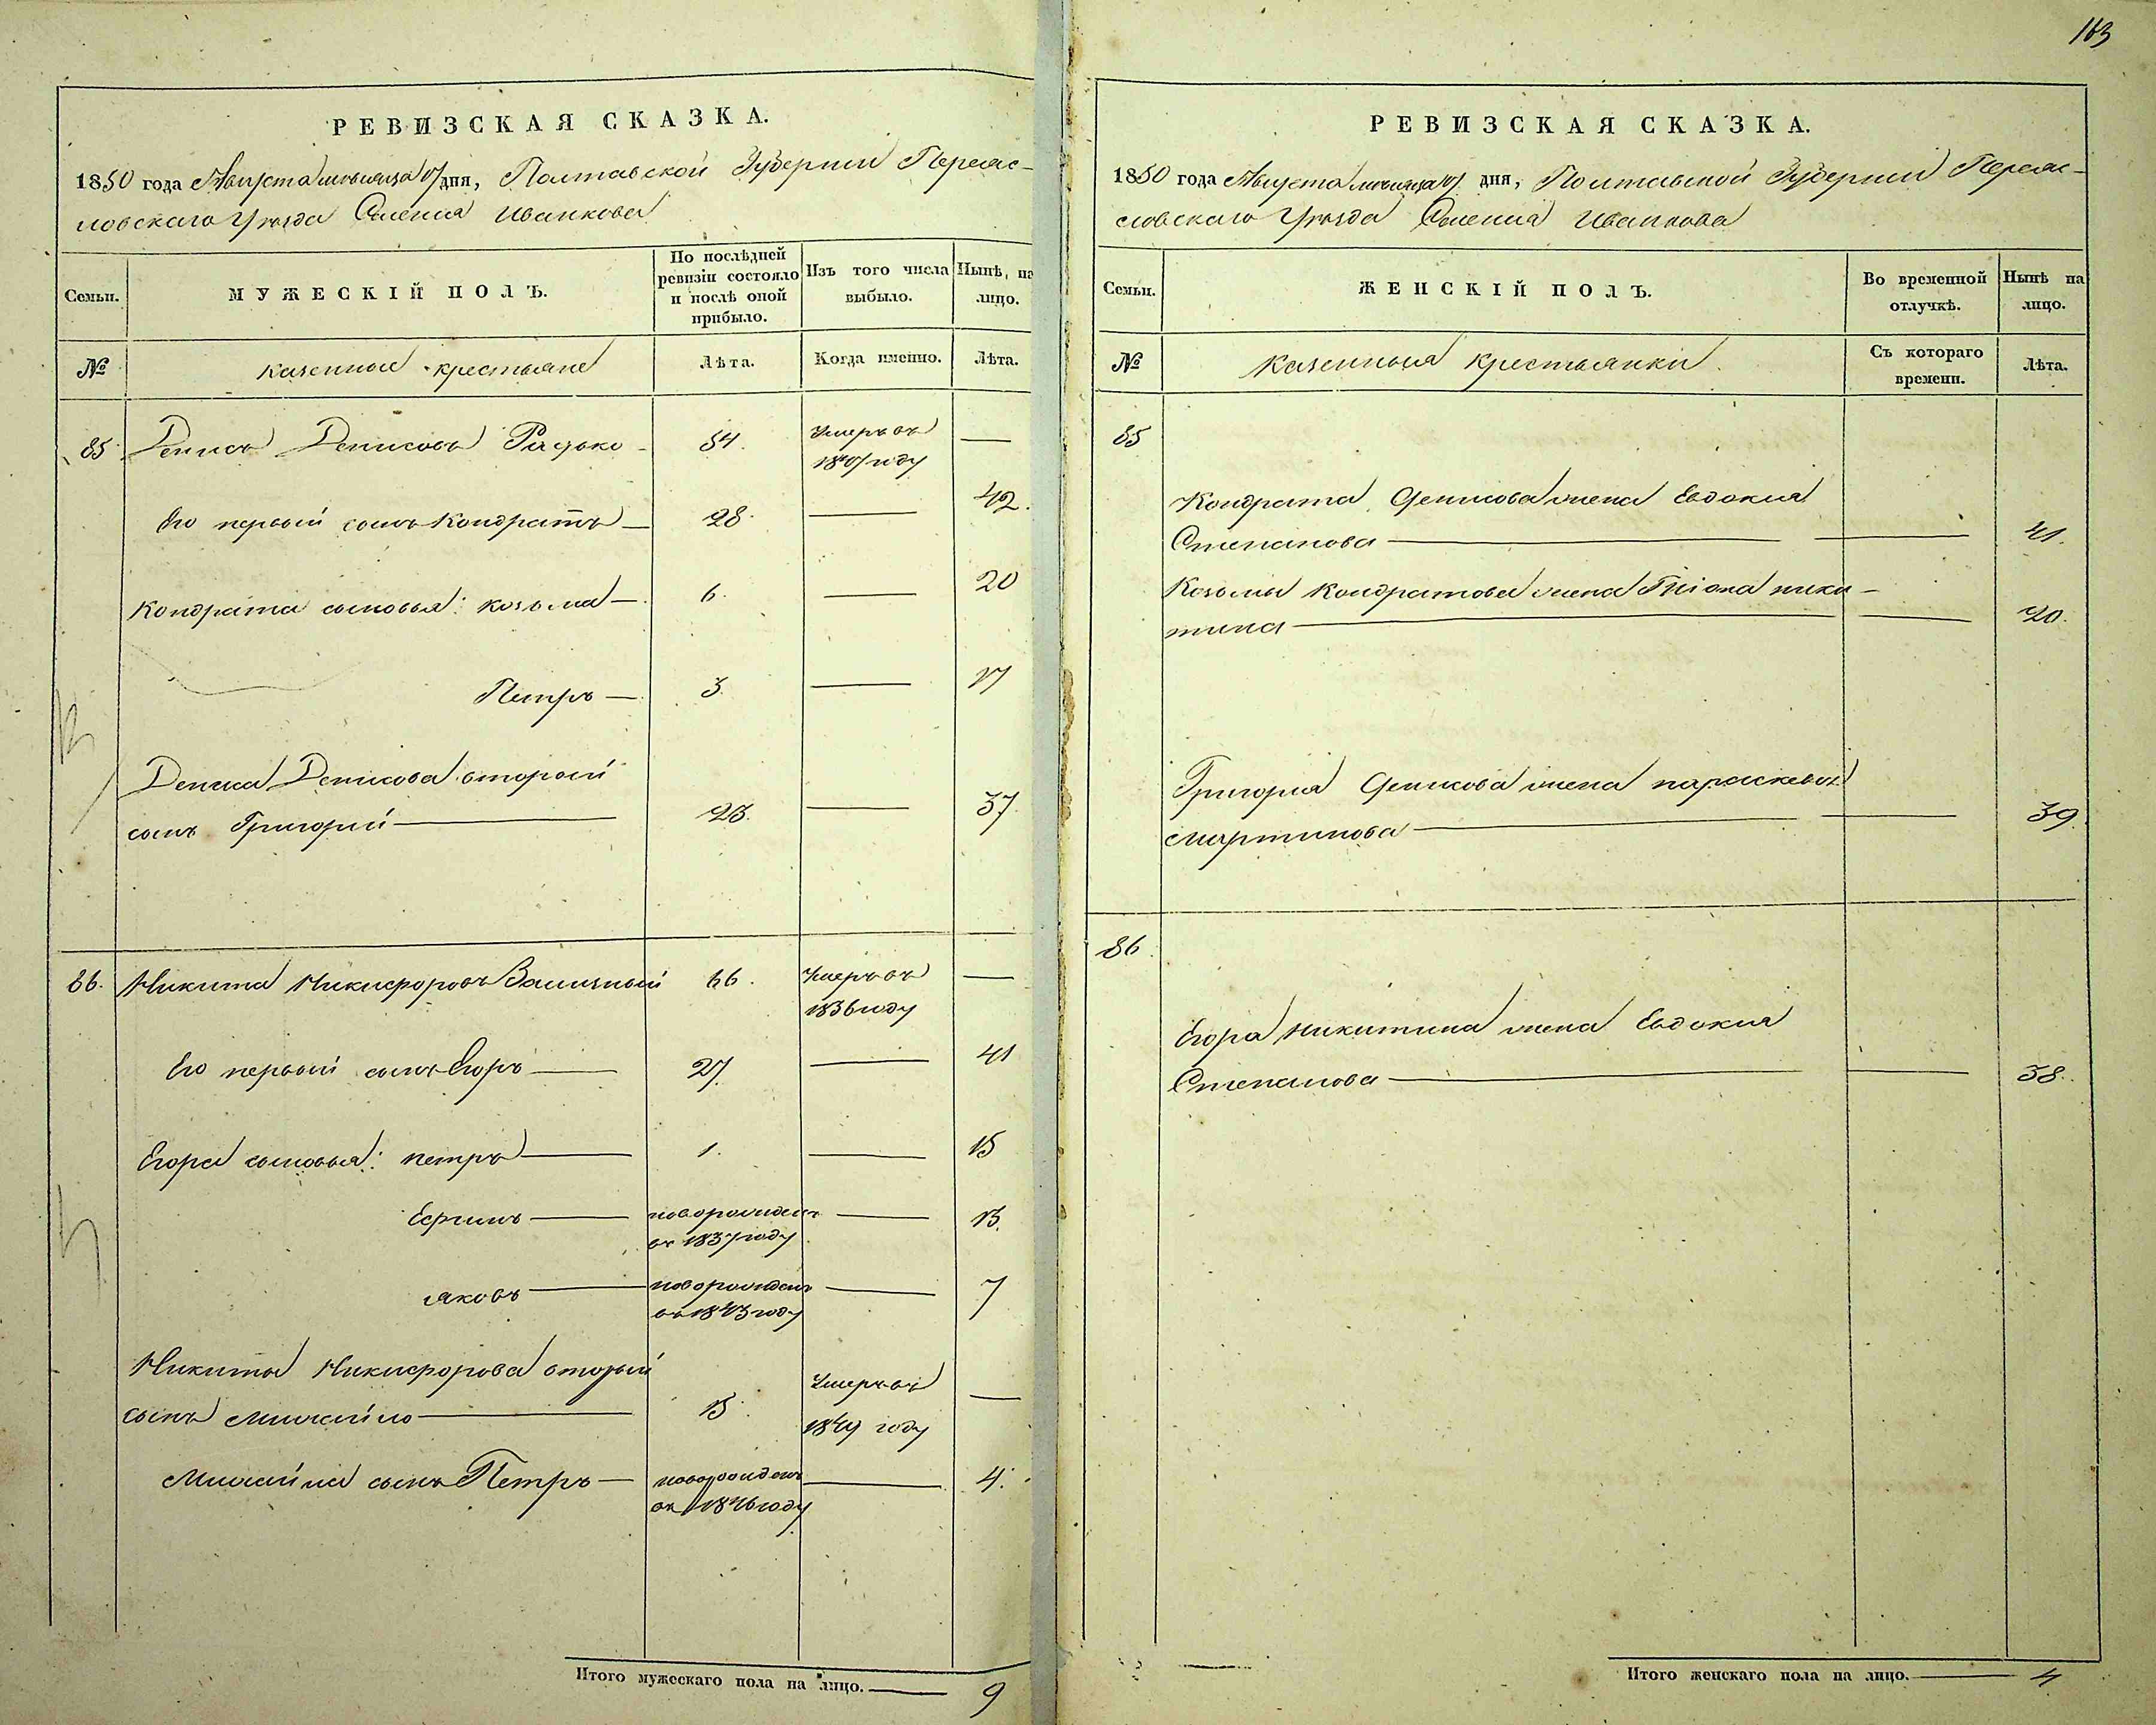 163
РЕВИЗСКАЯ СКАЗКА.
1850 года Августа месяца дня, Полтавской Губернии Переяс-
ловскаго Уезда Селения Иванкова
Семьи.
МУЖЕСКІЙ ПОЛЪ.
По послѣдней ревизіи состояло и послѣ оной прибыло.
Изъ того числа выбыло.
Нынѣ, на лицо.
№
казенные крестьяне
Лѣта.
Когда именно.
Лѣта.
85 Денисъ Денисовъ Радько - 54. Умеръ въ —
году
Его первый сынъ Кондратъ — 28. — 42.
Кондрата сыновья: козьма — 6. — 20
Петръ — 3. — 17
Дениса Денисова второй
сынъ Григорий — 23. — 37.
86. Никита Никифоровъ 66. Умеръ въ —
1836 году
Его первый сынъ Егоръ — 27. — 41
Егора сыновья: петръ — 1. — 15
Ефимъ — новорожденъ — 13.
въ 1837 году
яковъ — новорожденъ — 7
въ 1843 году
Никиты Никифорова вторый
сынъ михайло — 15. Умеръ въ —
1849 году
михайла сынъ Петръ — новорожденъ — 4.
въ 1846 году
Итого мужескаго пола на лицо. — 9
РЕВИЗСКАЯ СКАЗКА.
1850 года Августа месяца дня, Полтавской Губернии Переяс-
словскаго Уезда Селения Иванкова
Семьи.
ЖЕНСКІЙ ПОЛЪ.
Во временной отлучкѣ.
Нынѣ на лицо.
№
Казенныя крестьянки
Съ котораго времени.
Лѣта.
85
Кондрата Денисова жена Евдокия
Степанова — — 41.
Козьмы Кондратова жена ники-
тина — — 20.
Григория Денисова жена параскевья
мартинова — — 39.
86.
Егора Никитина жена Евдокия
Степанова — — 38.
Итого женскаго пола на лицо. — 4